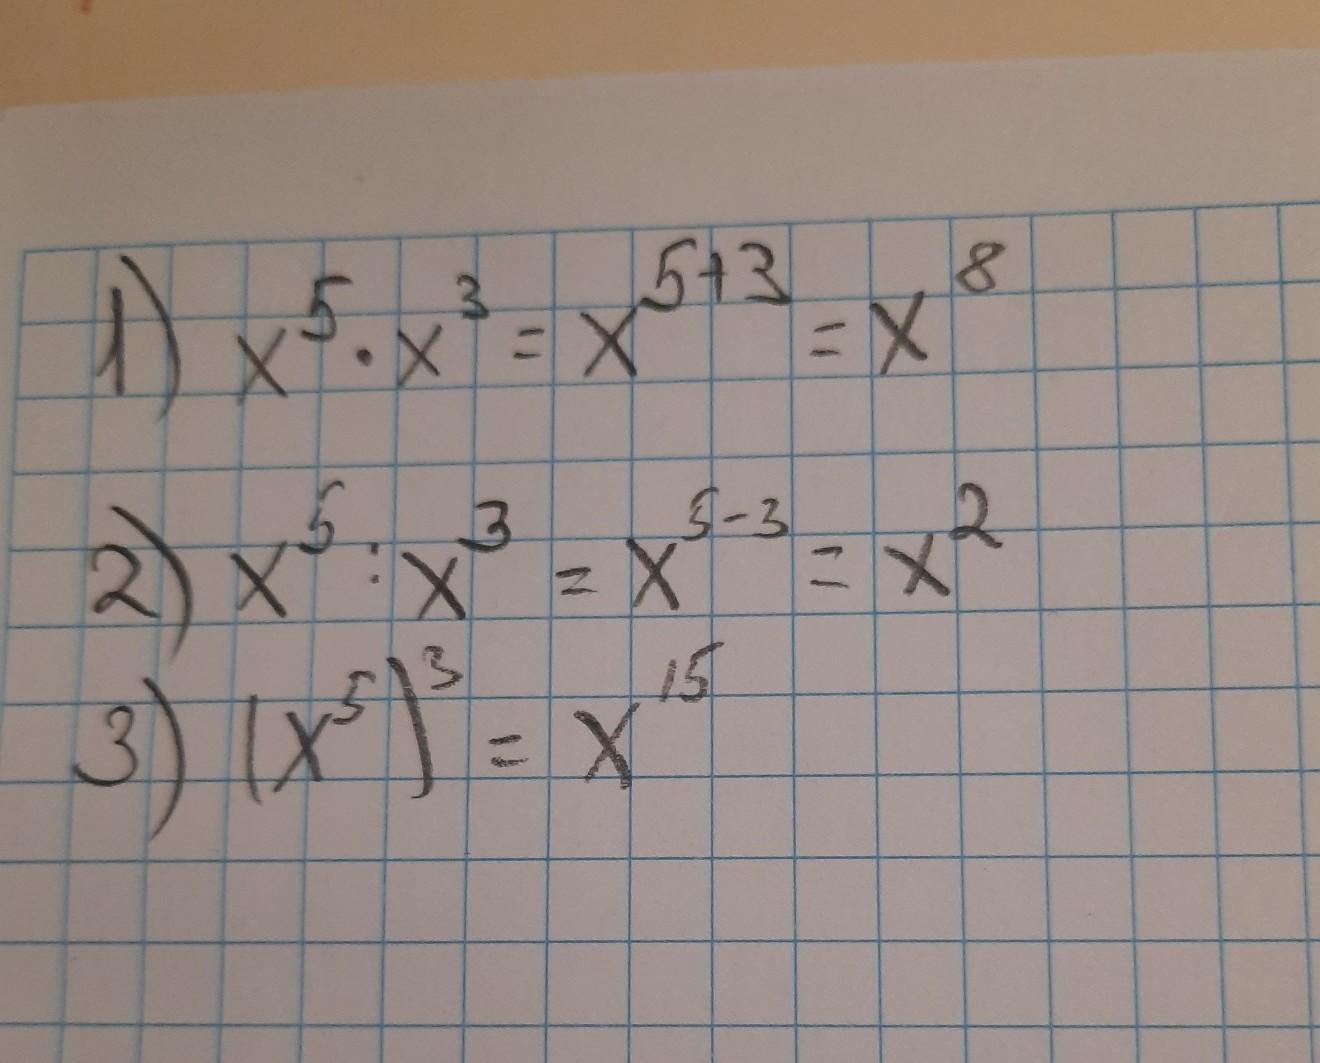 1) x⁵ · x³ = x⁵⁺³ = x⁸
2) x⁵ : x³ = x⁵⁻³ = x²
3) (x⁵)³ = x¹⁵